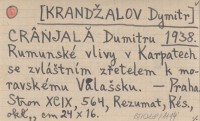 [KRANDŽALOV Dymitr]
CRÂNJALĂ Dumitru 1938.
Rumunské vlivy v Karpatech
se zvláštním zřetelem k mo-
ravskému Valašsku. — Praha
Strom XCIX, 564, Rezumat, Rés,
obl,, cm 24 × 16.